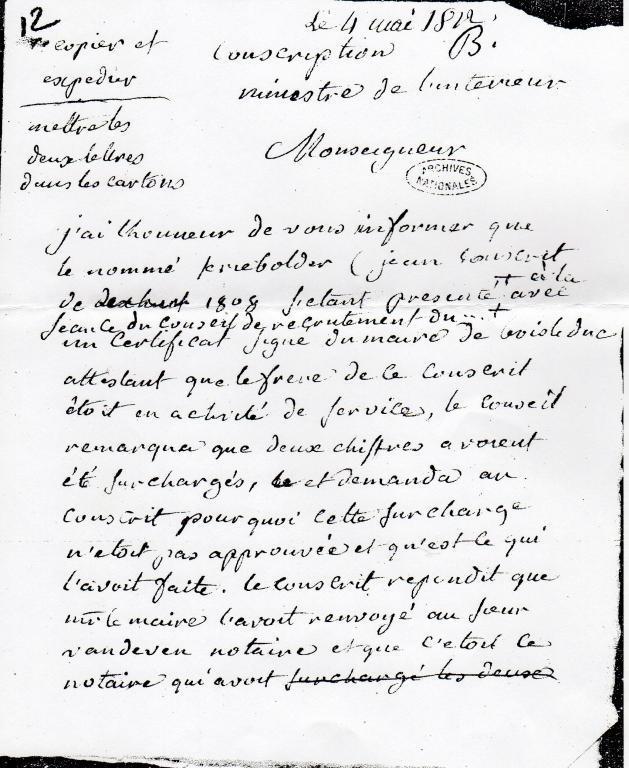 12
Le 4 mai 1812.
copier et
expedier
mettre les
deux lettres
dans les cartons
Conscription B.
ministre de l'interieur
Monseigneur
ARCHIVES
NATIONALES
j'ai lhonneur de vous informer que
le nommé Kriebolder (jean Conscrit
de 1808 s'etant presenté + avec
+ à la
seance du Conseil de recrutement du... +
un Certificat signé du maire de bois le duc
attestant que le frere de ce Conscrit
étoit en activité de service, le Conseil
remarqua que deux chiffres avoient
été surchargés, et demanda au
Conscrit pourquoi cette surcharge
n'etoit pas approuvée et qu'est ce qui
l'avoit faite. le Conscrit repondit que
mr le maire l'avoit renvoyé au sieur
vandeven notaire et que c'etoit ce
notaire qui avoit surchargé les deux